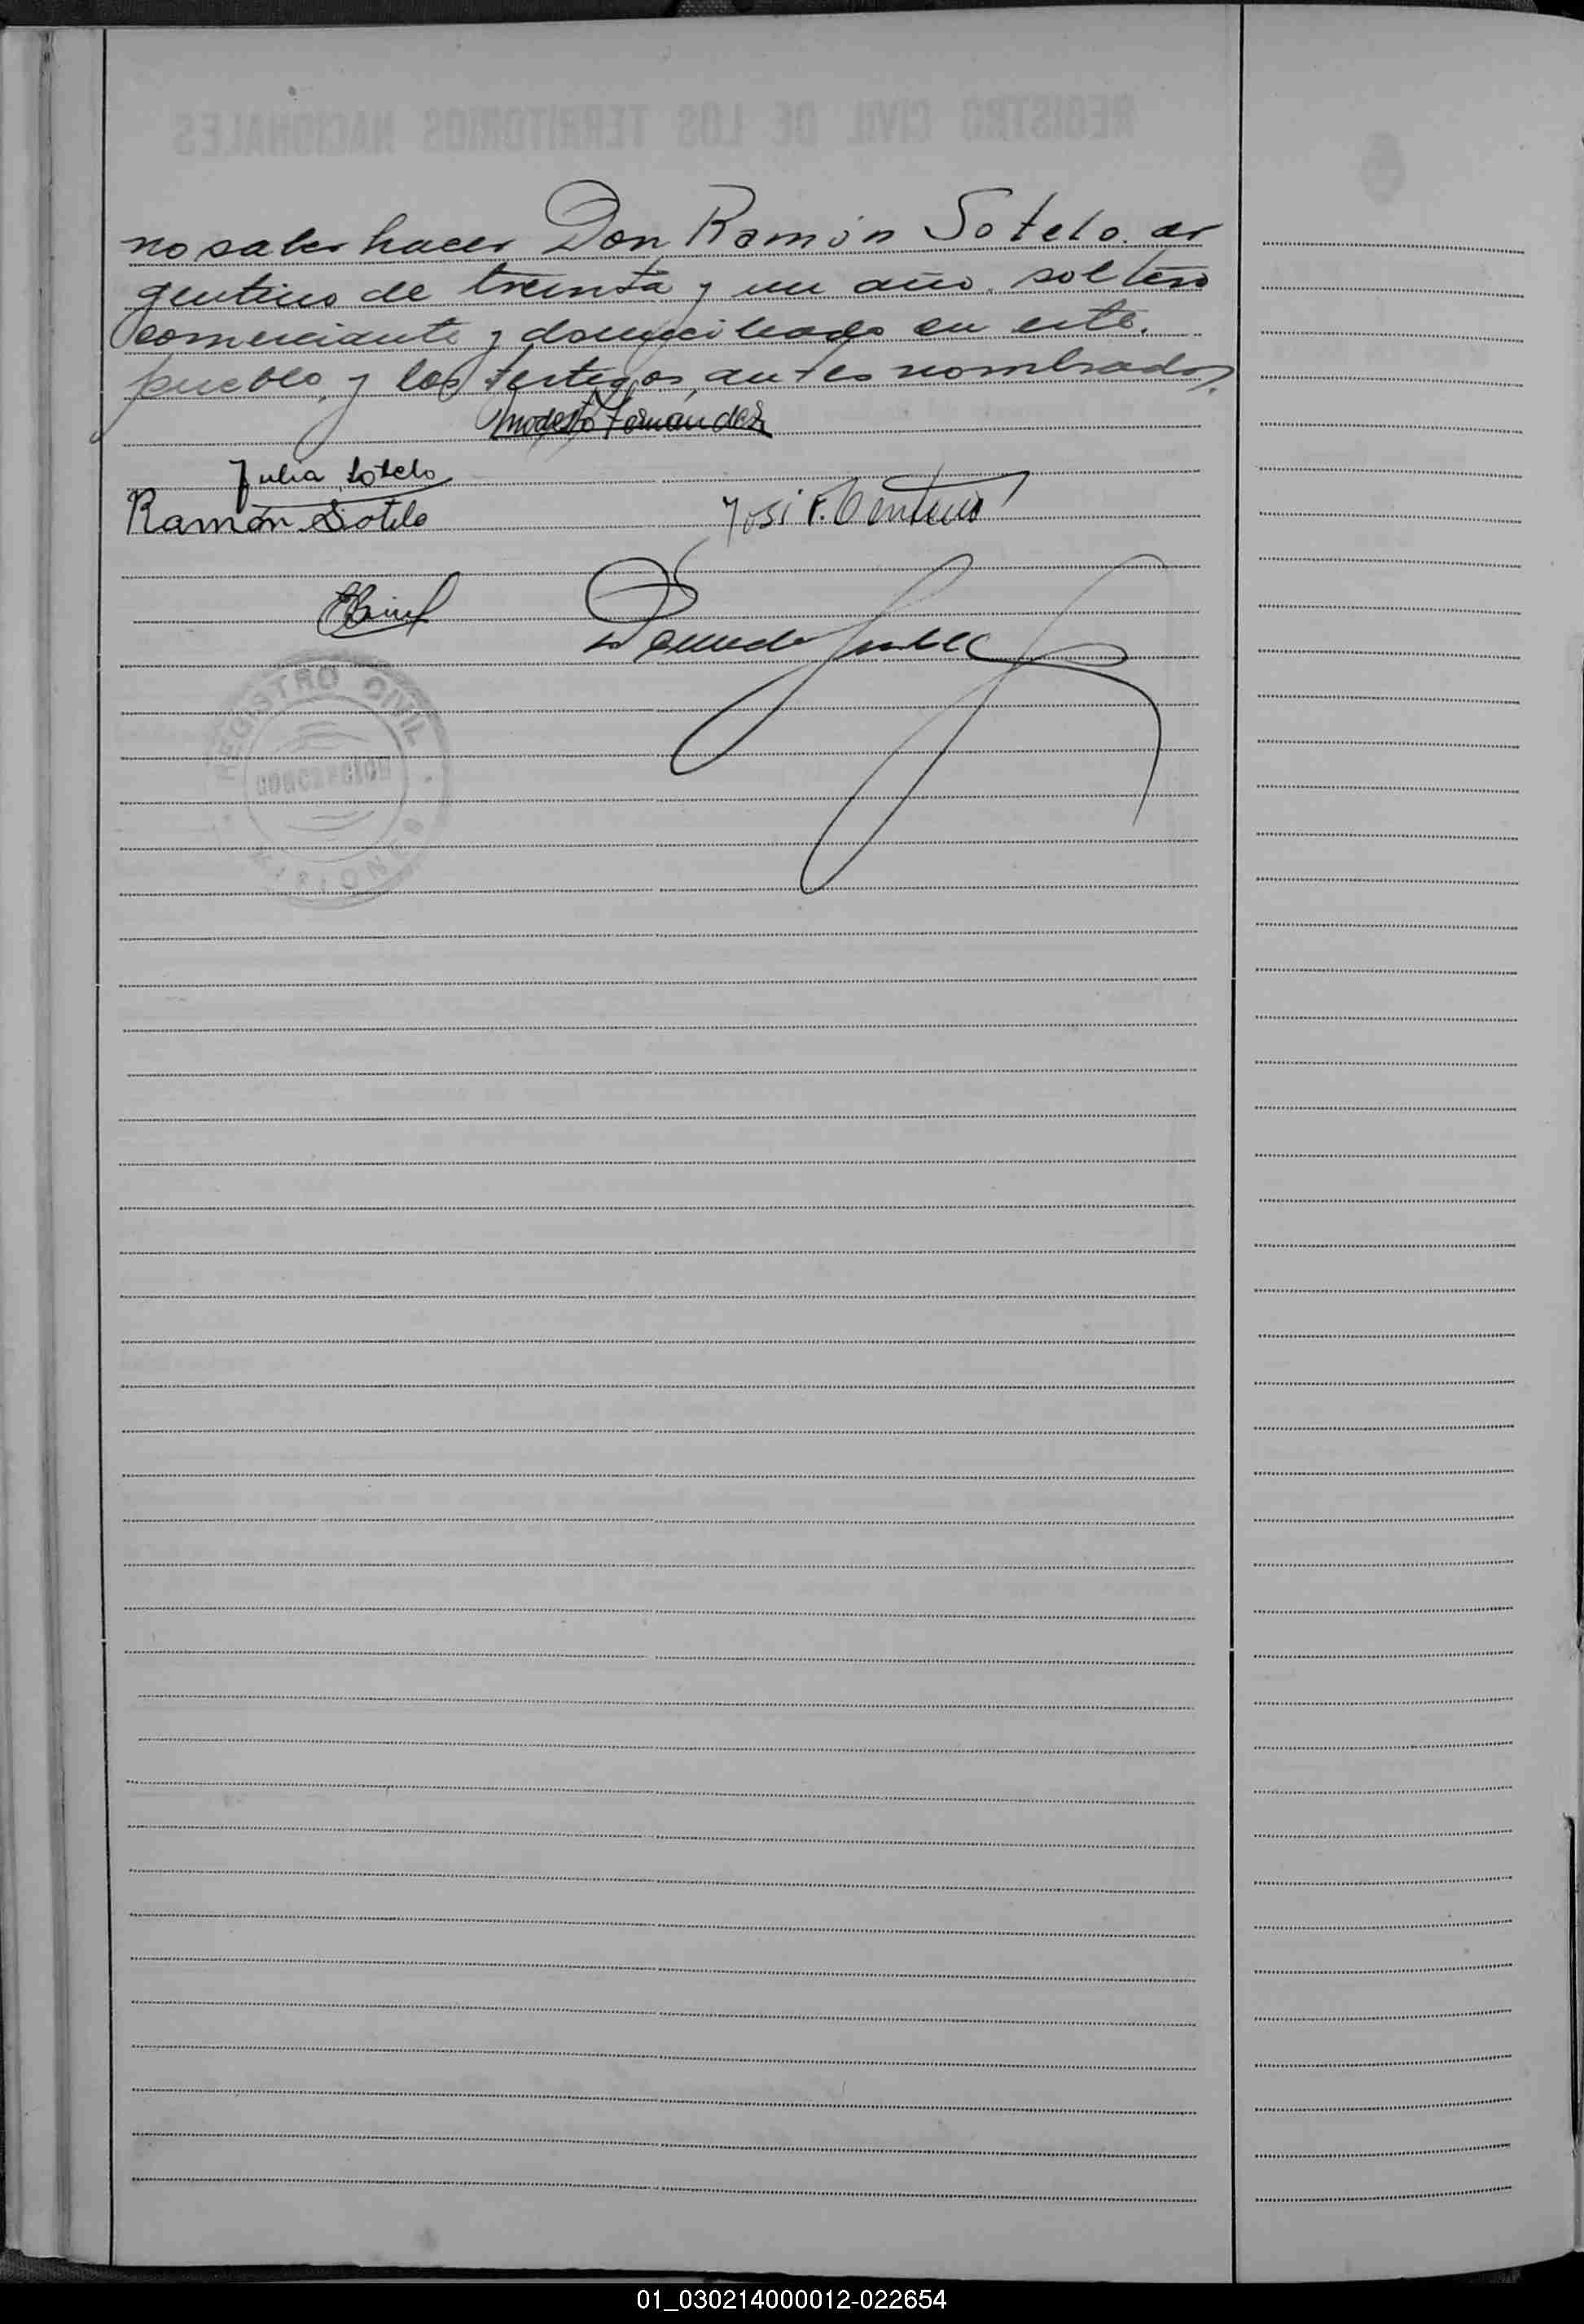 no saber hacer Don Ramón Sotelo. ar
gentino de treinta y un año. soltero
comerciante y domiciliado en este.
pueblo, y los testigos antes nombrados.
Modesto Fernández
Julia Sotelo
Ramón Sotelo
José F. Centeno
REGISTRO CIVIL
CONCEPCION
MISIONES
REGISTRO CIVIL DE LOS TERRITORIOS NACIONALES
01_030214000012-022654